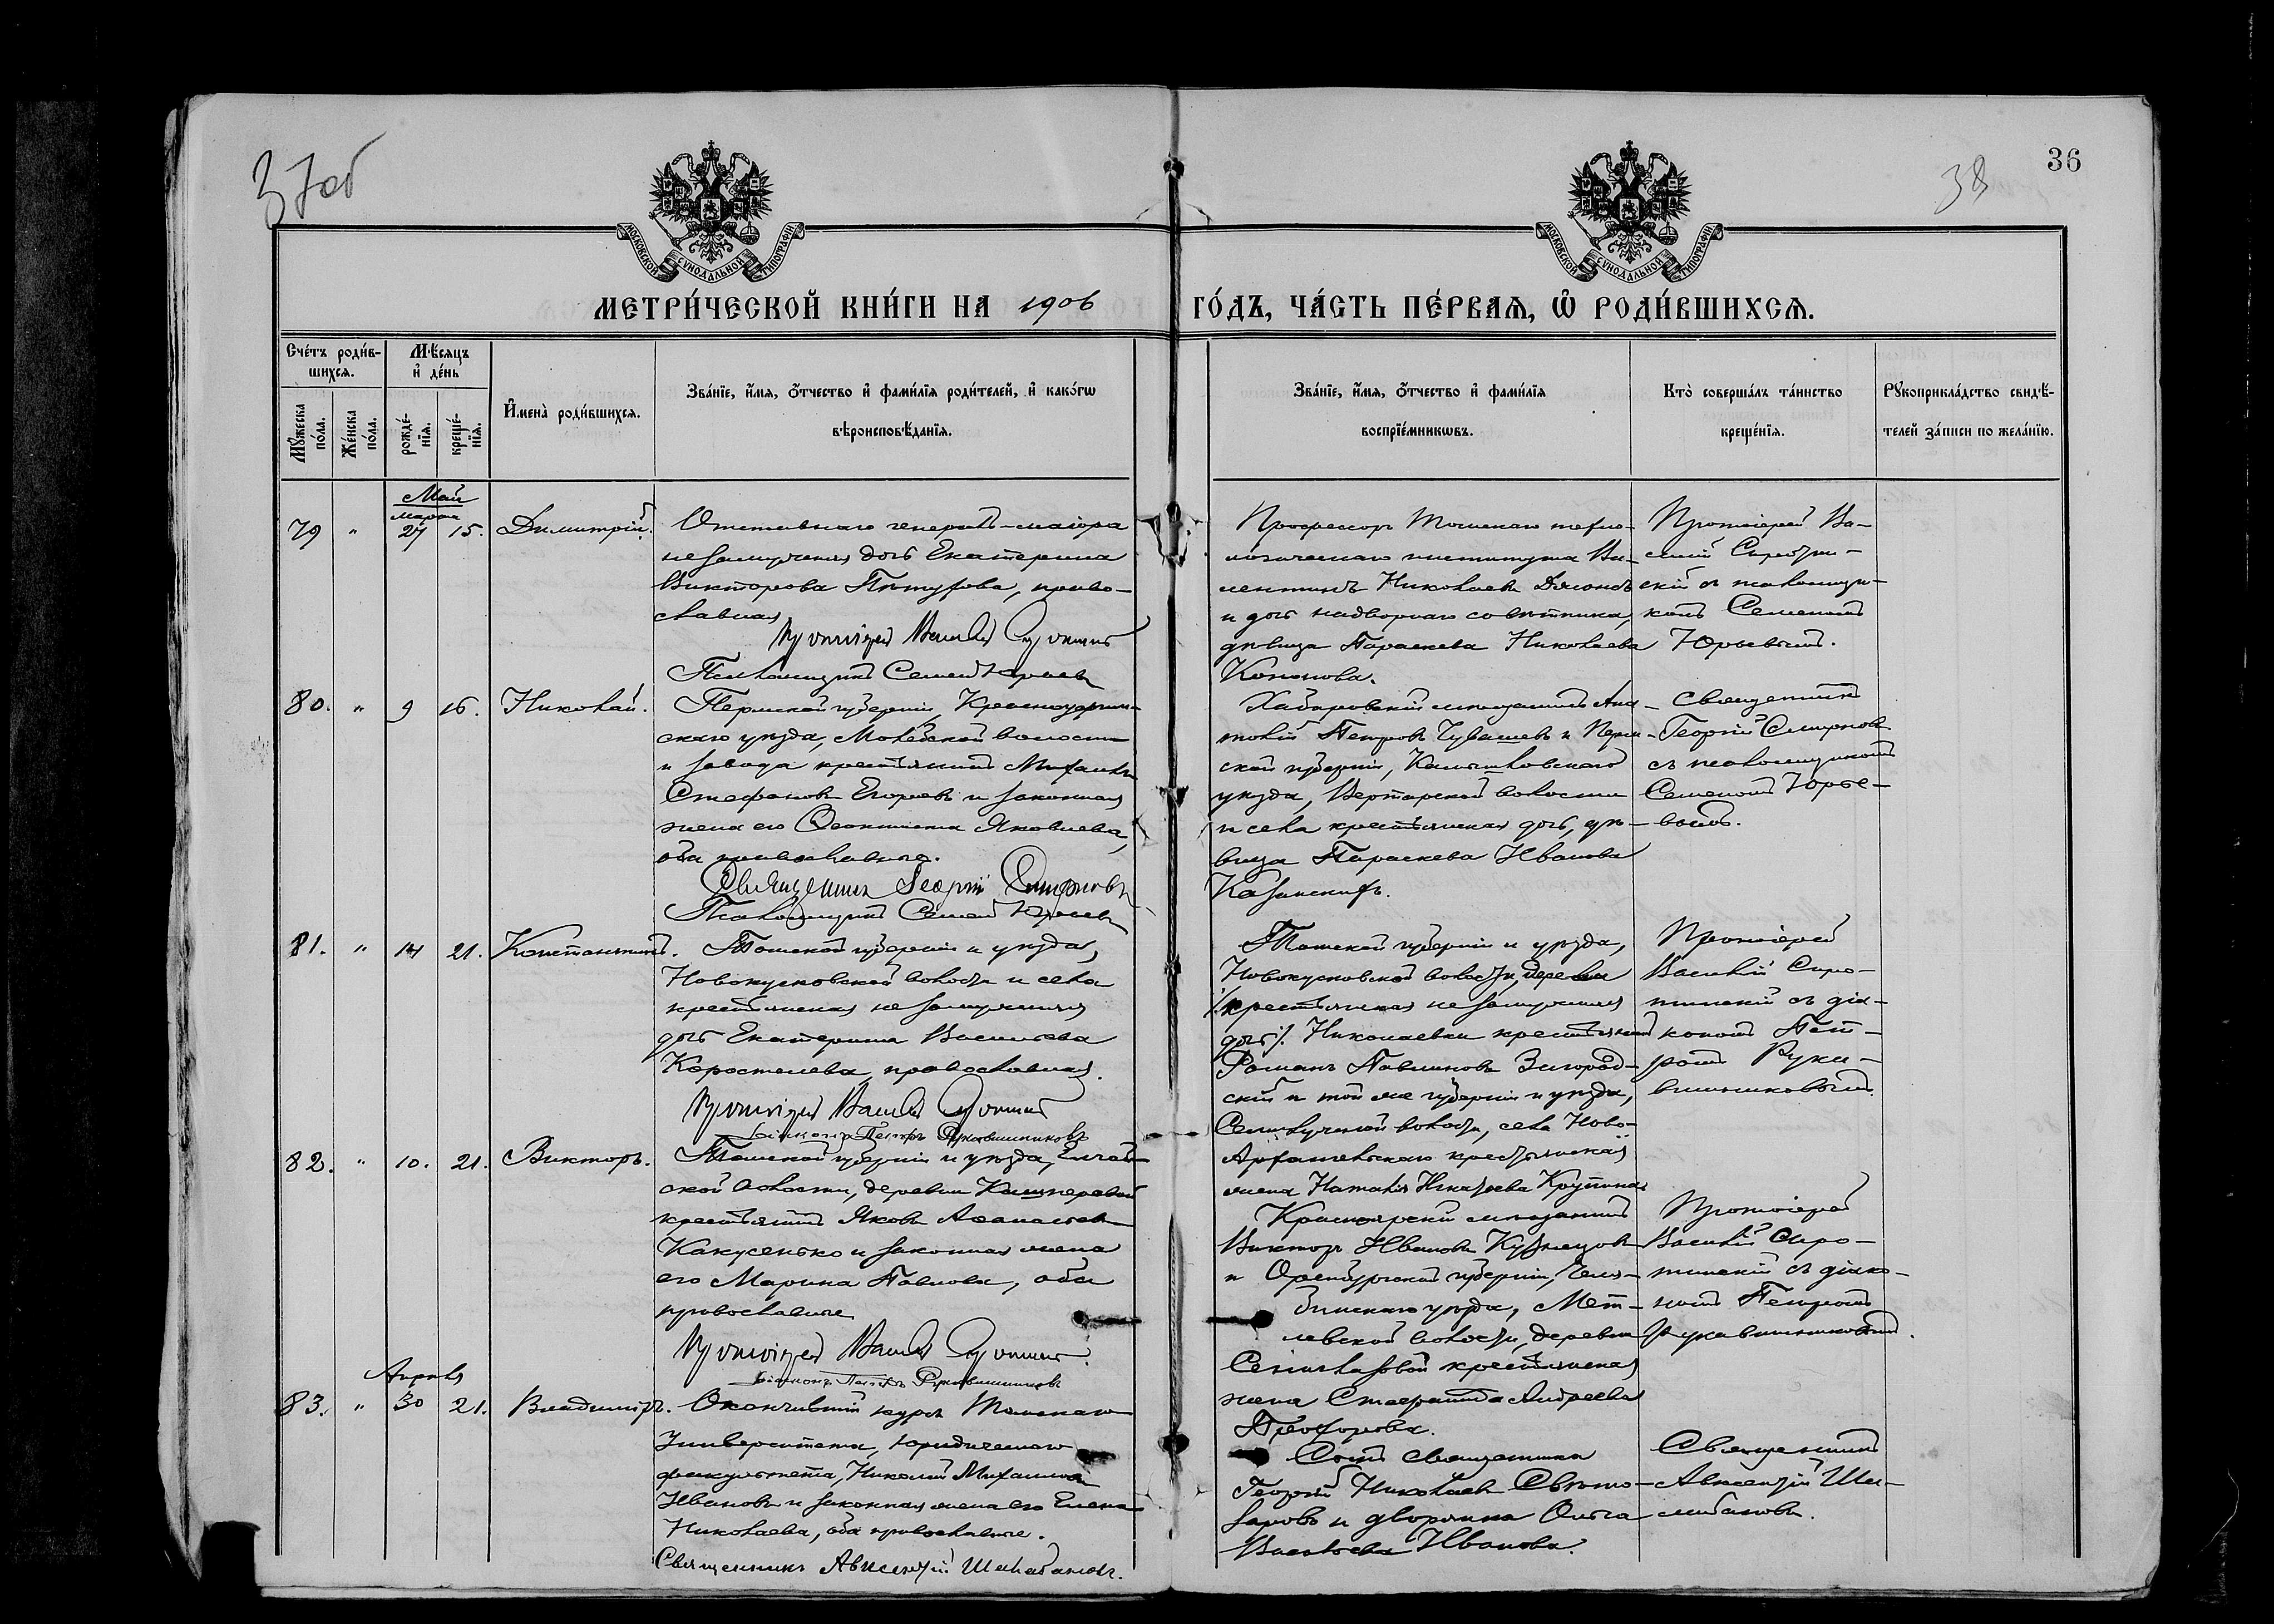 37об
36
38
МОСКОВСКОЙ СѴНОДАЛЬНОЙ ТИПОГРАФІИ
МОСКОВСКОЙ СѴНОДАЛЬНОЙ ТИПОГРАФІИ
МЕТРИ́ЧЕСКОЙ КНИ́ГИ НА 1906 ГО́ДЪ, ЧА́СТЬ ПЕ́РВАѦ, Ѡ҆ РОДИ́ВШИХСѦ.
Сче́тъ роди́в-
шихсѧ.
Мѣ́сяцъ
и҆ де́нь
Мꙋ́жеска
по́ла.
Же́нска
по́ла.
рожде́-
нїѧ.
креще́-
нїѧ.
И҆мена̀ роди́вшихсѧ.
Зва́нїе, и҆́мѧ, ѻ҆́тчество и҆ фами́лїѧ роди́телей, и҆ како́гѡ
вѣроисповѣ́данїѧ.
Зва́нїе, и҆́мѧ, ѻ҆́тчество и҆ фами́лїѧ
воспрїе́мникѡвъ.
Кто̀ соверша́лъ та́инство
креще́нїѧ.
Рꙋкоприкла́дство свидѣ́-
телей за́писи по жела́нїю.
Май
марта
79 " 27 15. Димитрій.
Отставнаго генералъ-маіора
незамужняя дочь Екатерина
Викторова Пѣтухова, право-
славная
Протоіерей Василій Сиротинскій
Псаломщикъ Семенъ Юрьевъ
Профессоръ Томскаго техно-
логическаго института Ва-
лентинъ Николаевъ Джонсъ
и дочь надворнаго совѣтника,
дѣвица Параскева Николаева
Кононова.
Протоіерей Ва-
силій Сиротин-
скій съ псаломщи-
комъ Семеномъ
Юрьевымъ.
80. " 9 16. Николай.
Пермской губерніи, Красноуфим-
скаго уѣзда, волости
и завода крестьянинъ Михаилъ
Стефановъ Егоровъ и законная
жена его Ѳеоктиста Яковлева,
оба православные.
Священникъ Георгій Смирновъ
Псаломщикъ Семенъ Юрьевъ
Хабаровскій мѣщанинъ Ана-
толій Петровъ Чувашевъ и Перм-
ской губерніи, Камышловскаго
уѣзда, волости
и села крестьянская дочь, дѣ-
вица Параскева Иванова
Казанскихъ.
Священникъ
Георгій Смирновъ
съ псаломщикомъ
Семеномъ Юрье-
вымъ.
81. " 14 21. Константинъ.
Томской губерніи и уѣзда,
Новокусковской волости и села
крестьянская незамужняя
дочь Екатерина Васильева
Коростелева, православная.
Протоіерей Василій Сиротинскій
Діаконъ Петръ Рукавишниковъ
Томской губерніи и уѣзда,
Новокусковской волости, деревни
/.крестьянская незамужняя
дочь/. Николаевки крестьянинъ
Романъ Павлиновъ Загород-
скій и той же губерніи и уѣзда,
Семилужной волости, села Ново-
Архангельскаго крестьянская
жена Наталія
Протоіерей
Василій Сиро-
тинскій съ діа-
кономъ Пет-
ромъ Рука-
вишниковымъ.
82. " 10. 21. Викторъ.
Томской губерніи и уѣзда, Елгай-
ской волости, деревни
крестьянинъ Яковъ Аѳанасьевъ
Какусенько и законная жена
его Марина Павлова, оба
православные
Протоіерей Василій Сиротинскій.
Діаконъ Петръ Рукавишниковъ
Красноярскій мѣщанинъ
Викторъ Ивановъ Кузнецовъ
и Оренбургской губерніи, Челя-
бинскаго уѣзда,
левской волости, деревни
крестьянская
жена Стефанида Андреева
Прохорова.
Протоіерей
Василій Сиро-
тинскій съ діако-
номъ Петромъ
Рукавишниковымъ.
Апрѣля
83. " 30 21. Владиміръ.
Окончившій курсъ Томскаго
Университета, юридическаго
факультета, Николай Михаиловъ
Ивановъ и законная жена его Елена
Николаева, оба православные.
Священникъ Авксентій Шалабановъ.
Сынъ священника
Георгій Николаевъ Свѣто-
заровъ и дворянка Ольга
Васильева Иванова.
Священникъ
Авксентій Ша-
лабановъ.